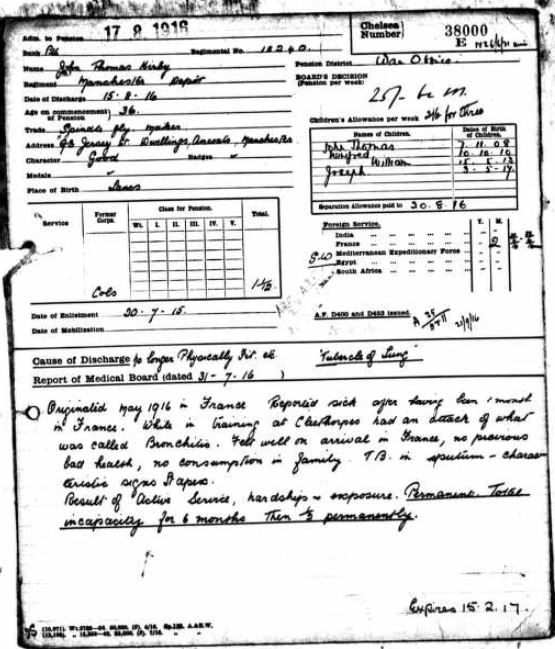 Adm. to Pension 17 8 1916
Chelsea Number} 38000
E
Rank Pte Regimental No.
Name John Thomas Kirby
Pension District War Office
Regiment Manchester Depôt
BOARD'S DECISION
(Pension per week)
Date of Discharge 15 . 8 . 16
25/-
Age on commencement of Pension } 36.
Children's Allowance per week 2/6 for three
Trade Spindle fly maker
Names of Children. Dates of Birth of Children.
Address Jersey St Dwellings, Ancoats, Manchester
John Thomas 7. 11. 08
Character Good Badges
Winifred 10. 10. 10
Medals
William 15. 5. 13
Joseph
Place of Birth Lancs
Separation Allowance paid to 30. 8. 16
Service Former Corps. Class for Pension. Total.
Wt. I. II. III. IV. V.
Foreign Service. Y. M.
India
France 2
Mediterranean Expeditionary Force
Egypt
South Africa
Cols
Date of Enlistment 30 . 7 . 15.
A.F. D400 and D453 issued.
Date of Mobilization
Cause of Discharge No longer Physically Fit "Tubercle of Lung"
Report of Medical Board (dated 31 - 7 . 16 )
Originated May 1916 in France Reported sick after having been 1 month
in France. While in training at Cleethorpes had an attack of what
was called Bronchitis. Felt well on arrival in France, no previous
bad health, no consumption in family. T.B. in sputum - charac
teristic signs
Result of Active Service, hardships & exposure. Permanent. Total
incapacity for 6 months then permanently.
Expires 15. 2. 17.